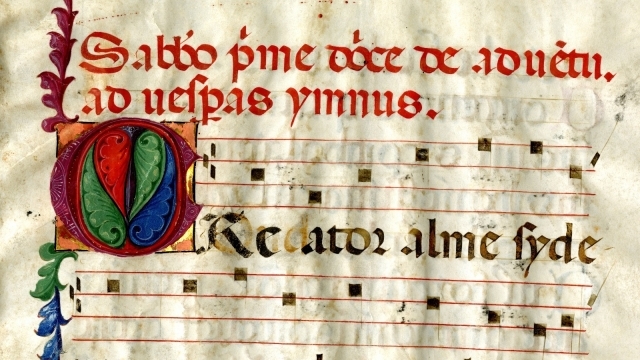 Sabb̄o p̄me dōce de aduētu.
ad uesꝑas ymnus.
CReator alme syde